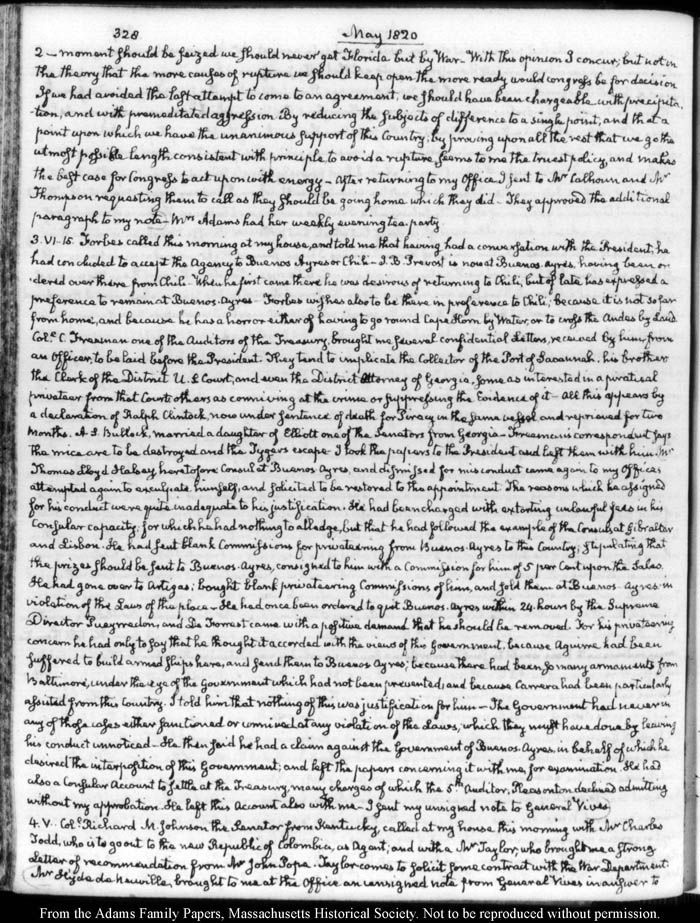 328 May 1820
2 — moment should be seized we should never get Florida but by War. With this opinion I concur; but not in
the theory that the more causes of rupture we should keep open the more ready would Congress be for decision
If we had avoided the last attempt to come to an agreement, we should have been chargeable with precipita-
tion, and with premeditated aggression. By reducing the subjects of difference to a single point, and that a
point upon which we have the unanimous support of this Country; by proving upon all the rest that we go the
utmost possible length consistent with principle to avoid a rupture, seems to me the truest policy, and makes
the best case for Congress to act upon with energy — After returning to my Office I sent to Mr Calhoun and Mr
Thompson requesting them to call as they should be going home which they did — They approved the additional
paragraph to my note — Mrs Adams had her weekly evening tea-party.
3. VI-15. Forbes called this morning at my house, and told me that having had a conversation with the President, he
had concluded to accept the Agency to Buenos Ayres or Chili — J. B. Prevost is now at Buenos-Ayres, having been or-
dered over there from Chili — When he first came there he was desirous of returning to Chili, but of late has expressed a
preference to remain at Buenos-Ayres — Forbes wishes also to be there in preference to Chili; because it is not so far
from home, and because he has a horror either of having to go round Cape Horn by Water, or to cross the Andes by Land.
Coll. C. Freeman one of the Auditors of the Treasury, brought me several confidential Letters, received by him, from
an Officer, to be laid before the President. They tend to implicate the Collector of the Port of Savannah, his brother
the Clerk of the District U. S. Court, and even the District Attorney of Georgia, some as interested in a piratical
privateer from that Court others as conniving at the crime or suppressing the Evidence of it — All this appears by
a declaration of Ralph Clintock, now under sentence of death for Piracy in the same vessel and reprieved for two
Months. A. S. Bulloch, married a daughter of Elliott one of the Senators from Georgia — Freeman's correspondent says
the mice are to be destroyed and the Tygers escape — I took the papers to the President and left them with him. Mr
Thomas Lloyd Halsey, heretofore Consul at Buenos Ayres, and dismissed for misconduct came again to my Office;
attempted again to exculpate himself, and solicited to be restored to the appointment. The reasons which he assigned
for his conduct were quite inadequate to his justification. He had been charged with extorting unlawful fees in his
Consular capacity; for which he had nothing to alledge, but that he had followed the example of the Consuls at Gibraltar
and Lisbon. He had sent blank Commissions for privateering from Buenos-Ayres to this Country; stipulating that
the prizes should be sent to Buenos-Ayres, consigned to him with a Commission for him of 5 per Cent upon the Sales.
He had gone over to Artigas; bought blank privateering Commissions of him, and sold them at Buenos-Ayres in
violation of the Laws of the place — He had once been ordered to quit Buenos-Ayres within 24 hours by the Supreme
Director Pueyrredon, and De Forrest came with a positive demand that he should be removed. For his privateering
concern he had only to say that he thought it accorded with the views of this Government, because Aguirre had been
suffered to build armed ships here, and send them to Buenos Ayres; because there had been so many armaments from
Baltimore, under the eye of the Government which had not been prevented; and because Carrera had been particularly
assisted from this Country. I told him that nothing of this was justification for him — The Government had never in
any of those cases either sanctioned or connived at any violation of the Laws, which they must have done by leaving
his conduct unnoticed — He then said he had a claim against the Government of Buenos-Ayres, in behalf of which he
desired the interposition of this Government; and left the papers concerning it with me, for examination. He had
also a Consular Account to settle at the Treasury, many charges of which the 5th Auditor, Pleasonton declined admitting
without my approbation. He left this Account also with me — I sent my unsigned note to General Vives.
4. V. Coll. Richard M. Johnson the Senator from Kentucky, called at my house this morning with Mr Charles
Todd, who is to go out to the new Republic of Colombia, as Agent; and with a Mr Taylor, who brought me a strong
Letter of recommendation from Mr John Pope. Taylor comes to solicit some contract with the War Department.
Mr Hyde de Neuville, brought to me at the Office an unsigned note from General Vives in answer to
From the Adams Family Papers, Massachusetts Historical Society. Not to be reproduced without permission.